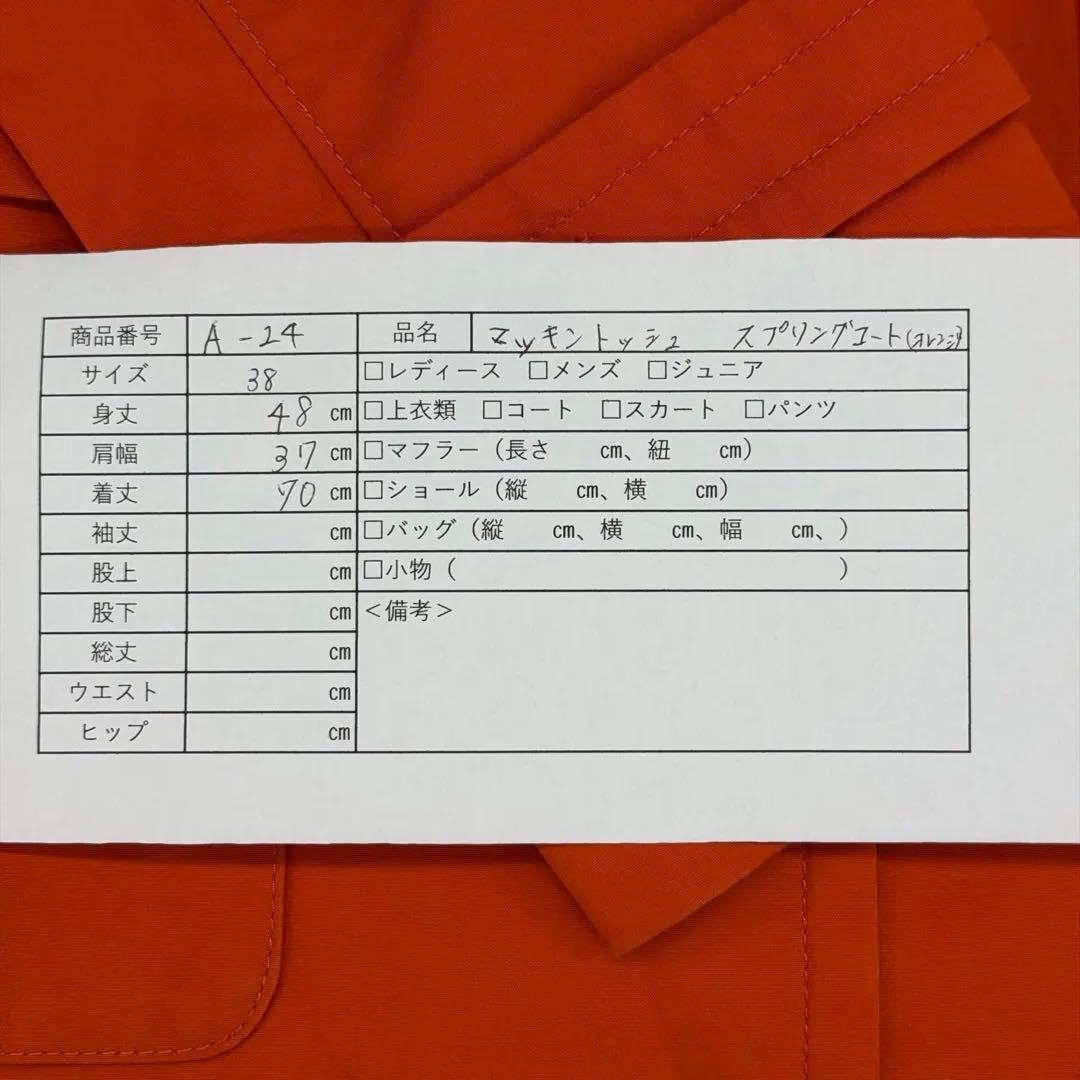 商品番号 A-24 品名 マッキントッシュ スプリングコート(オレンジ)
サイズ 38 □レディース □メンズ □ジュニア
身丈 48 cm □上衣類 □コート □スカート □パンツ
肩幅 37 cm □マフラー（長さ cm、紐 cm）
着丈 70 cm □ショール（縦 cm、横 cm）
袖丈 cm □バッグ（縦 cm、横 cm、幅 cm、）
股上 cm □小物（ ）
股下 cm ＜備考＞
総丈 cm
ウエスト cm
ヒップ cm